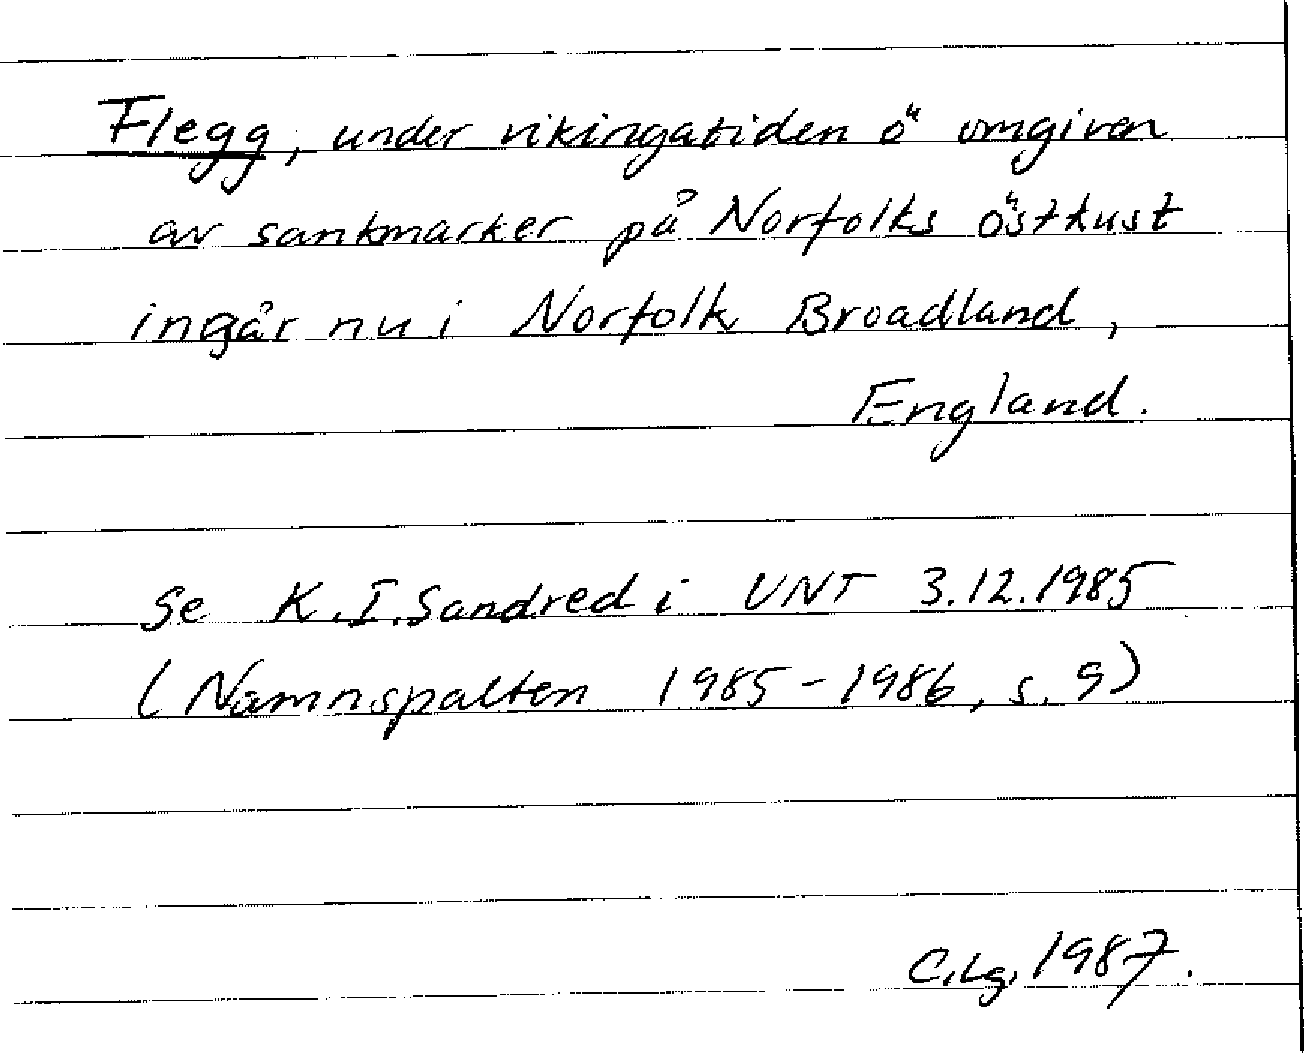 Flegg, under vikingatiden ö omgiven
av sankmarker på Norfolks östkust
ingår nu i Norfolk Broadland,
England.
Se K.I. Sandred i UNT 3.12.1985
(Namnspalten 1985-1986, s. 9)
C.Lg. 1987.